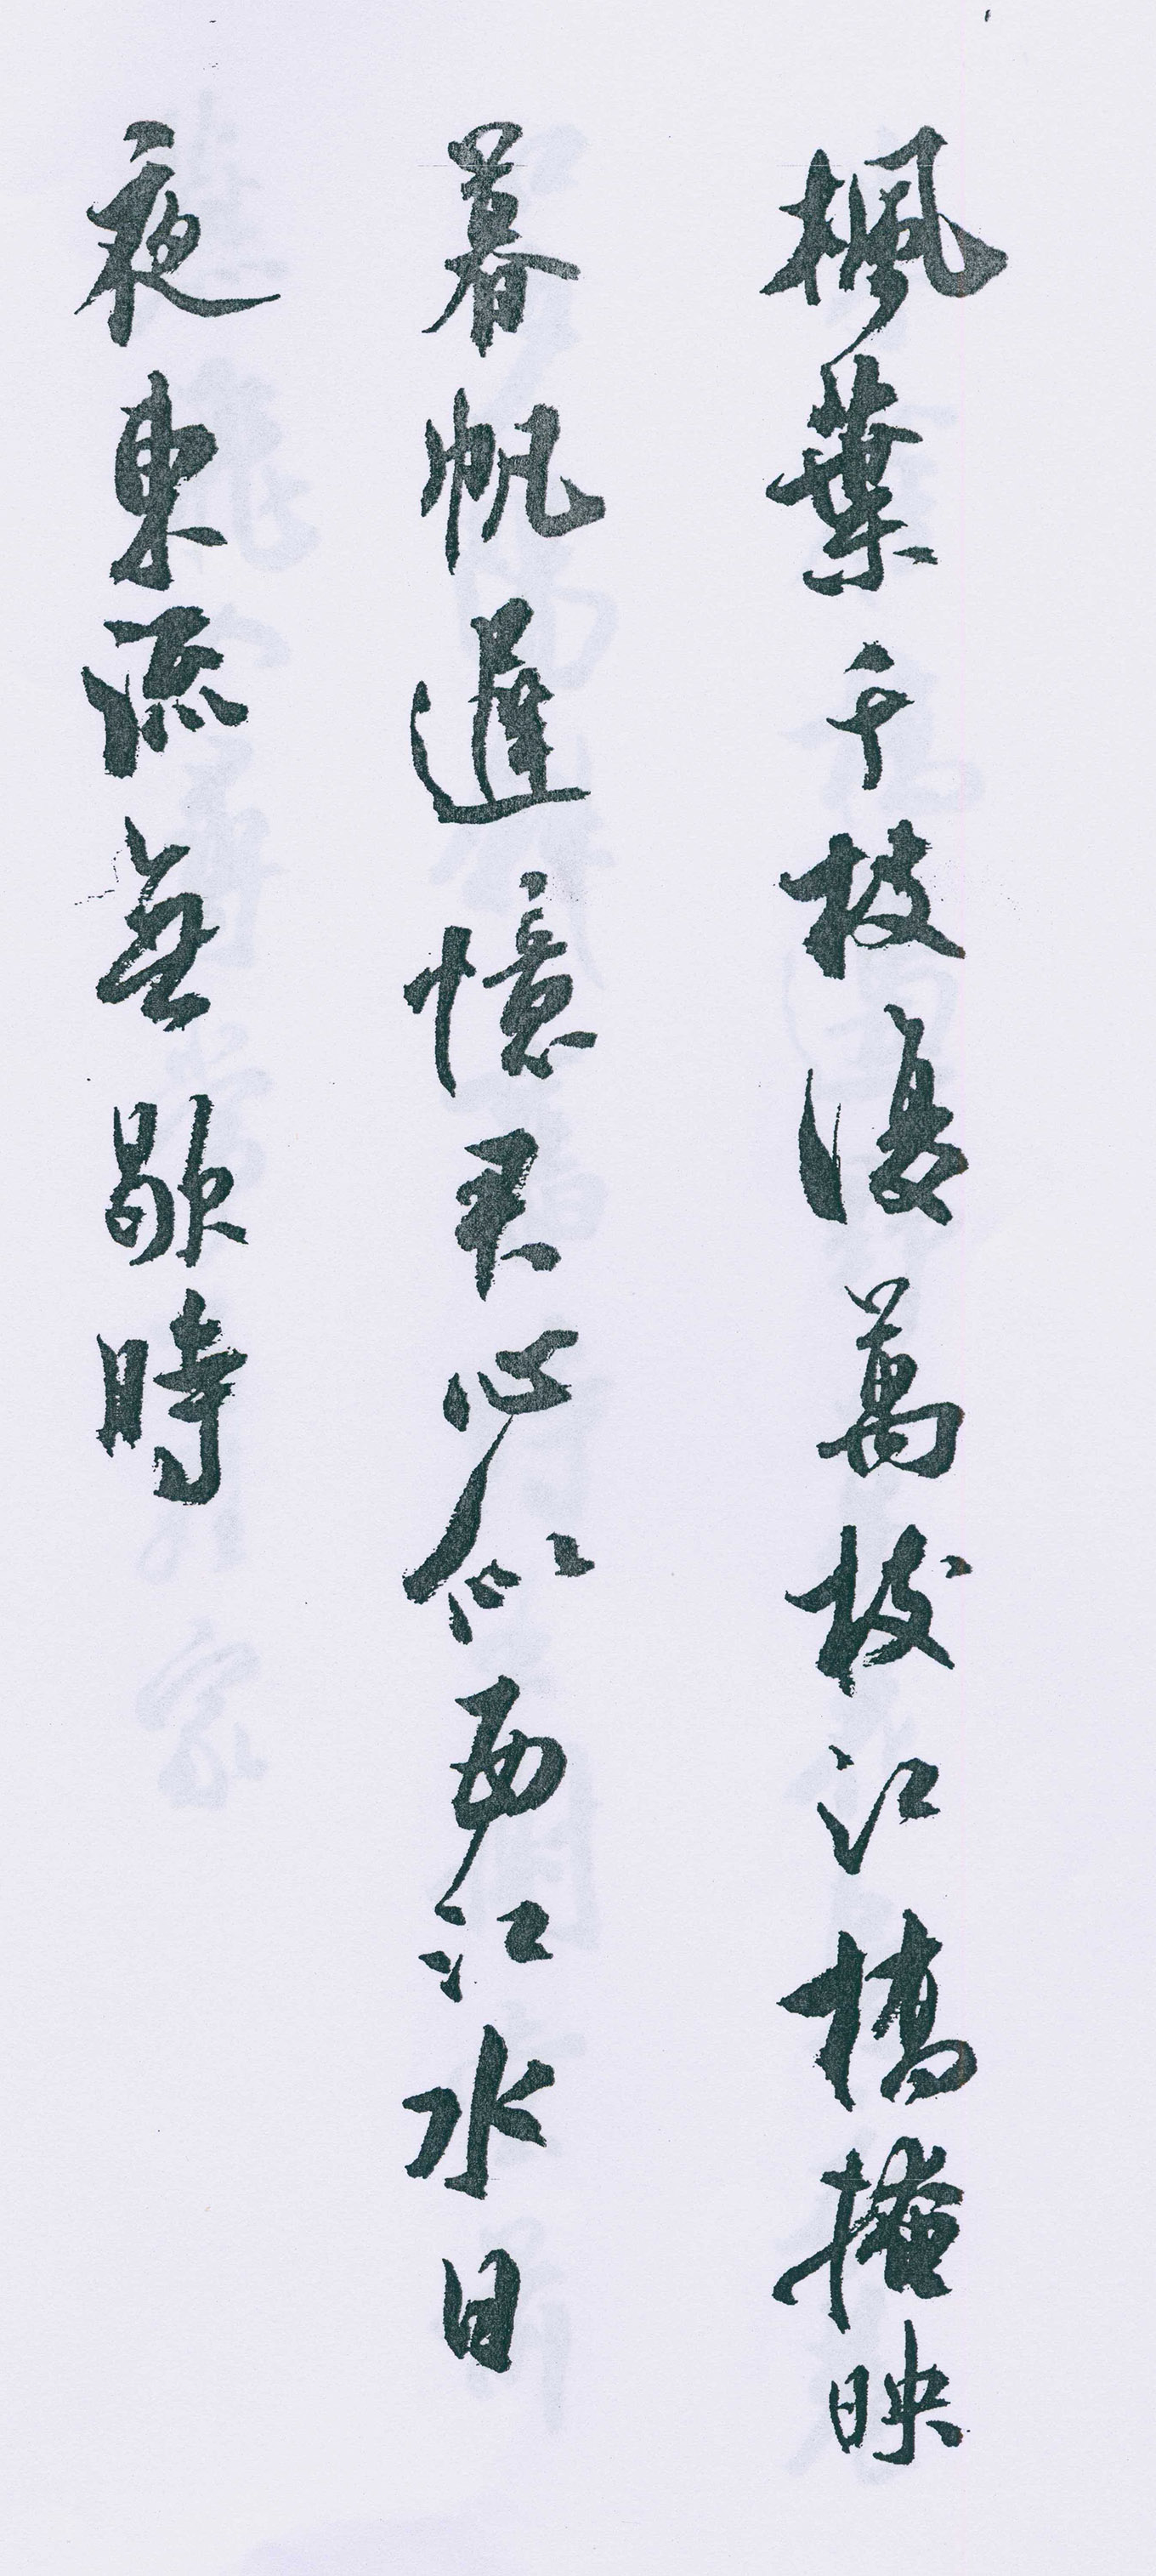 楓葉千枝復萬枝江橋掩映
暮帆遲憶君心似西江水日
夜東流無歇時